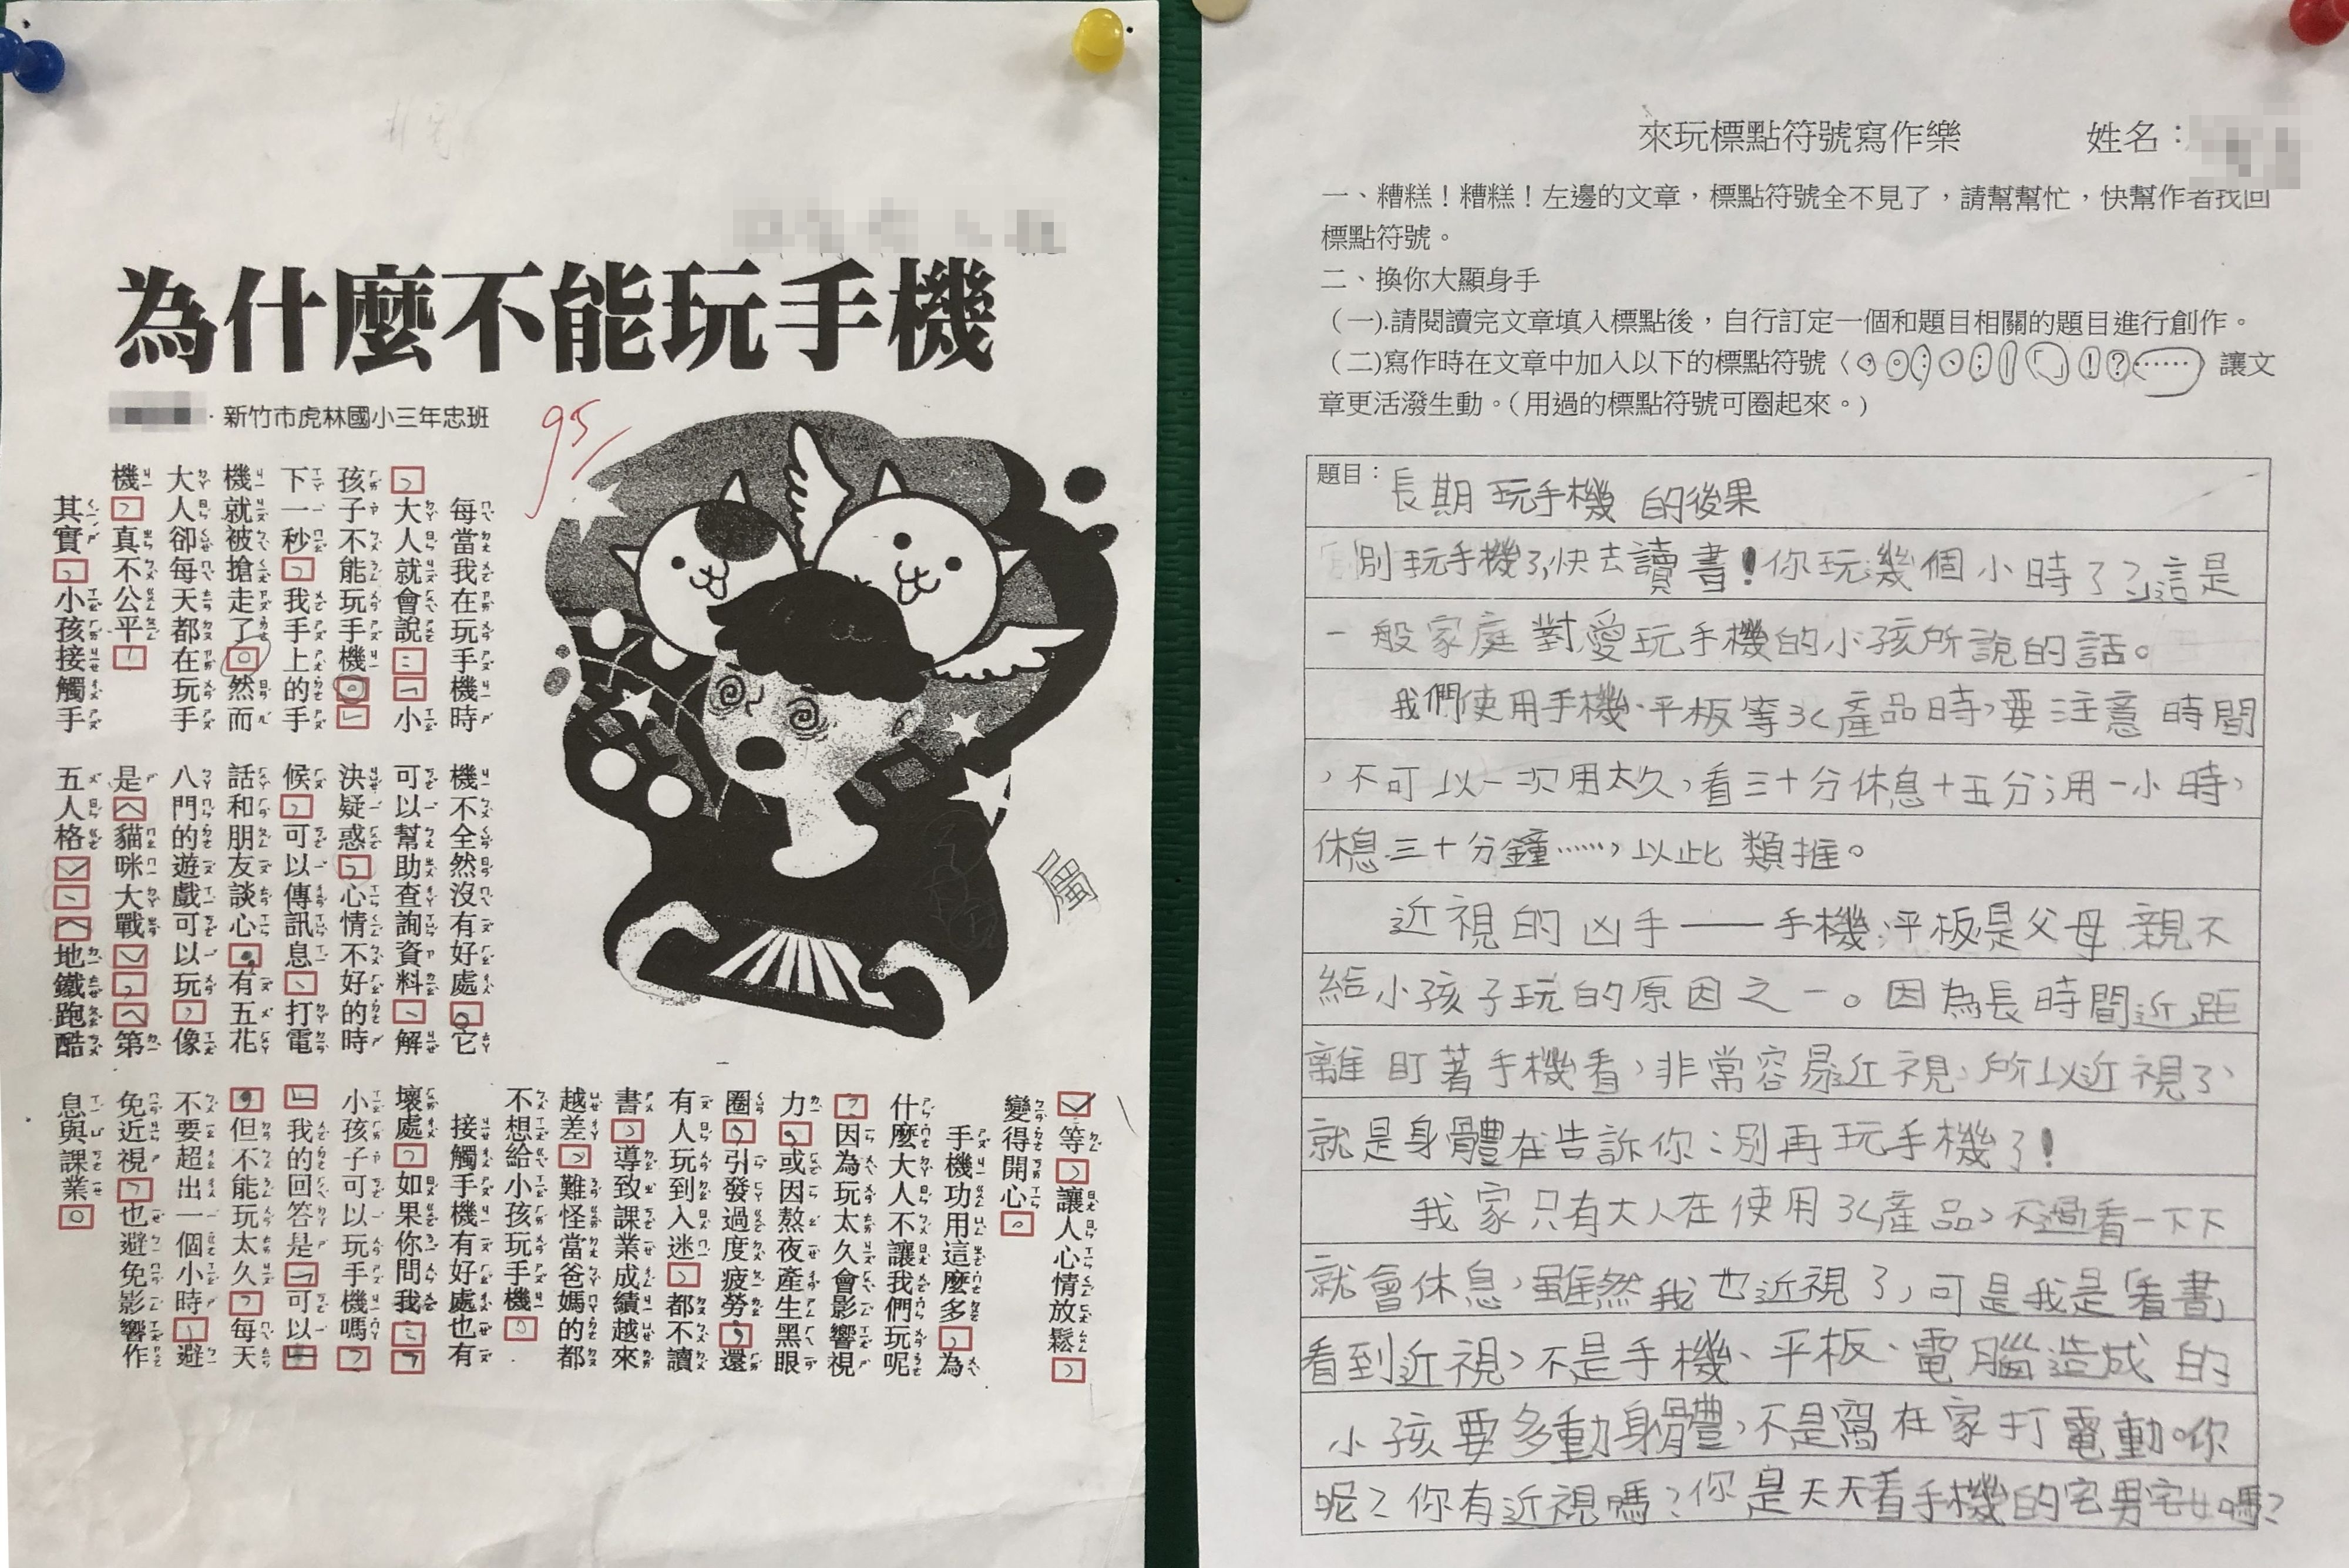 為什麼不能玩手機
·新竹市虎林國小三年忠班
95
每當我在玩手機時
，大人就會說：「小
孩子不能玩手機。」
下一秒，我手上的手
機就被搶走了。然而
大人卻每天都在玩手
機，真不公平！
其實，小孩接觸手
機不全然沒有好處。它
可以幫助查詢資料、解
決疑惑，心情不好的時
候，可以傳訊息、打電
話和朋友談心，有五花
八門的遊戲可以玩，像
是〈貓咪大戰〉，〈第
五人格〉、〈地鐵跑酷
〉等，讓人心情放鬆，
變得開心。
手機功用這麼多，為
什麼大人不讓我們玩呢
？因為玩太久會影響視
力，或因熬夜產生黑眼
圈，引發過度疲勞，還
有人玩到入迷，都不讀
書，導致課業成績越來
越差，難怪當爸媽的都
不想給小孩玩手機。
接觸手機有好處也有
壞處，如果你問我：「
小孩子可以玩手機嗎？
」我的回答是「可以」
，但不能玩太久，每天
不要超出一個小時，避
免近視，也避免影響作
息與課業。
屬
來玩標點符號寫作樂 姓名：
一、糟糕！糟糕！左邊的文章，標點符號全不見了，請幫幫忙，快幫作者找回
標點符號。
二、換你大顯身手
（一).請閱讀完文章填入標點後，自行訂定一個和題目相關的題目進行創作。
（二)寫作時在文章中加入以下的標點符號〈，。：、；｜「」！？……〉讓文
章更活潑生動。（用過的標點符號可圈起來。）
題目：長期玩手機的後果
別玩手機了，快去讀書！你玩幾個小時了？這是
一般家庭對愛玩手機的小孩所說的話。
我們使用手機、平板等3C產品時，要注意時間
，不可以一次用太久，看三十分休息十五分；用一小時，
休息三十分鐘……，以此類推。
近視的凶手——手機、平板是父母親不
給小孩子玩的原因之一。因為長時間近距
離盯著手機看，非常容易近視，所以近視了，
就是身體在告訴你：別再玩手機了！
我家只有大人在使用3C產品，不過看一下下
就會休息，雖然我也近視了，可是我是「看書」
看到近視，不是手機、平板、電腦造成的
小孩要多動身體，不是窩在家打電動。你
呢？你有近視嗎？你是天天看手機的宅男宅女嗎？